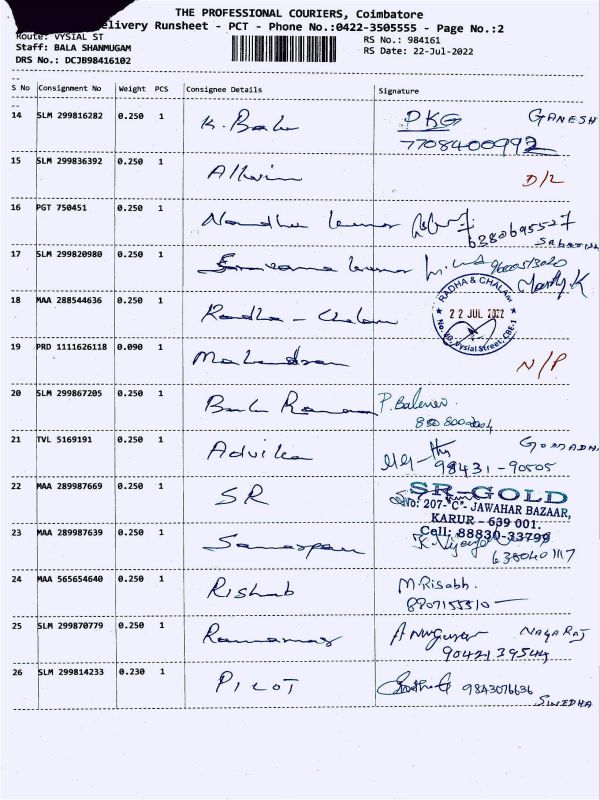 THE PROFESSIONAL COURIERS, Coimbatore
elivery Runsheet - PCT - Phone No.:0422-3505555 - Page No.:2
Route: VYSIAL ST
RS No.: 984161
Staff: BALA SHANMUGAM
RS Date: 22-Jul-2022
DRS No.: DCJB98416102
S No Consignment No Weight PCS Consignee Details Signature
14 SLM 299816282 0.250 1 K. Balu PKG GANESH
7708400992
15 SLM 299836392 0.250 1 D/L
16 PGT 750451 0.250 1 Nandha Kumar
6380695527
17 SLM 299820980 0.250 1 Kumar
18 MAA 288544636 0.250 1 Radha - Chalam
RADHA & CHALAM
22 JUL 2022
Vysial Street, CBE-1
19 PRD 1111626118 0.090 1 N/P
20 SLM 299867205 0.250 1 Bala P.
21 TVL 5169191 0.250 1 Advika
98431-90505
22 MAA 289987669 0.250 1 SR
SR-GOLD
No: 207-"C"- JAWAHAR BAZAAR,
KARUR - 639 001.
Cell: 88830-33799
23 MAA 289987639 0.250 1
24 MAA 565654640 0.250 1 Rishab M. Risabh.
8807155510
25 SLM 299870779 0.250 1 NAGARAJ
9042139544
26 SLM 299814233 0.230 1 PILOT 9843076636